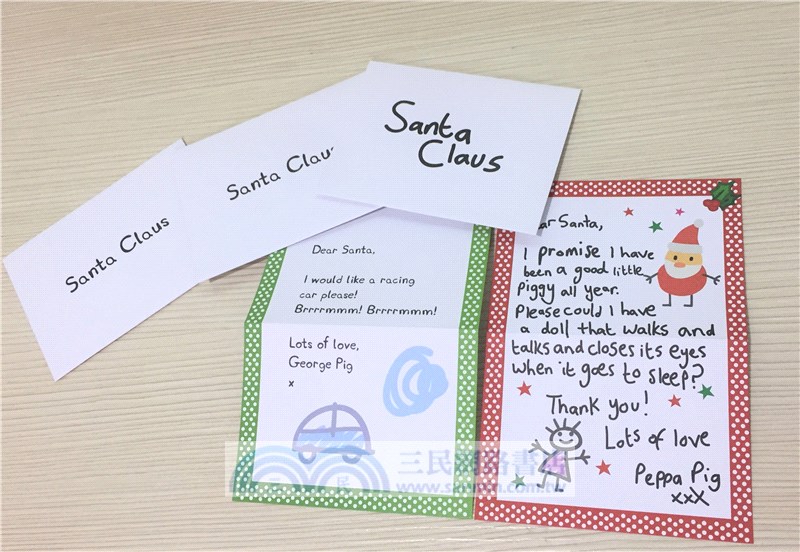 Santa Claus
Santa Clau
Santa
Claus
Dear Santa,
I would like a racing
car please!
Brrrrmmm! Brrrrmmm!
Lots of love,
George Pig
x
ar Santa,
I promise I have
been a good little
piggy all year.
Please could I have
a doll that walks and
talks and closes its eyes
when it goes to sleep?
Thank you!
Lots of love
Peppa Pig
xxX
三民網路書店
民
www.sanmin.com.tw